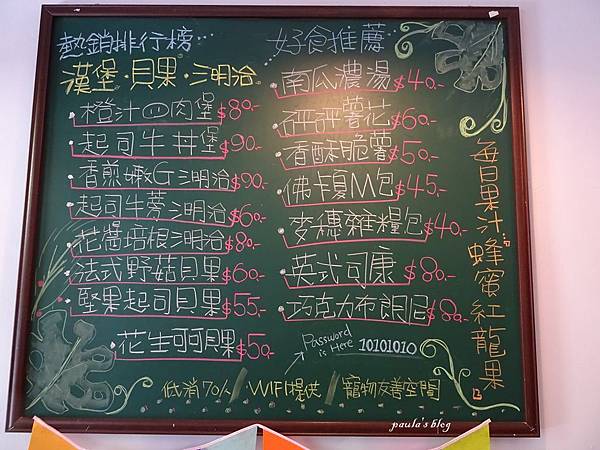 熱銷排行榜
漢堡·貝果·三明治
橙汁凹肉堡 $80.-
起司牛丼堡 $90.-
香煎蝦G三明治 $90.-
起司牛蒡三明治 $60.-
花醬培根三明治 $80.-
法式野菇貝果 $60.-
堅果起司貝果 $55.-
花生可可貝果 $50.-
好食推薦
南瓜濃湯 $40.-
砰砰薯花 $60.-
香酥脆薯 $50.-
佛卡夏M包 $45.-
麥穗雜糧包 $40.-
英式司康 $80.-
巧克力布朗尼 $80.-
Password is Here 10101010
每日果汁 蜂蜜紅龍果
低消70人 / WIFI提供 / 寵物友善空間
paula's blog